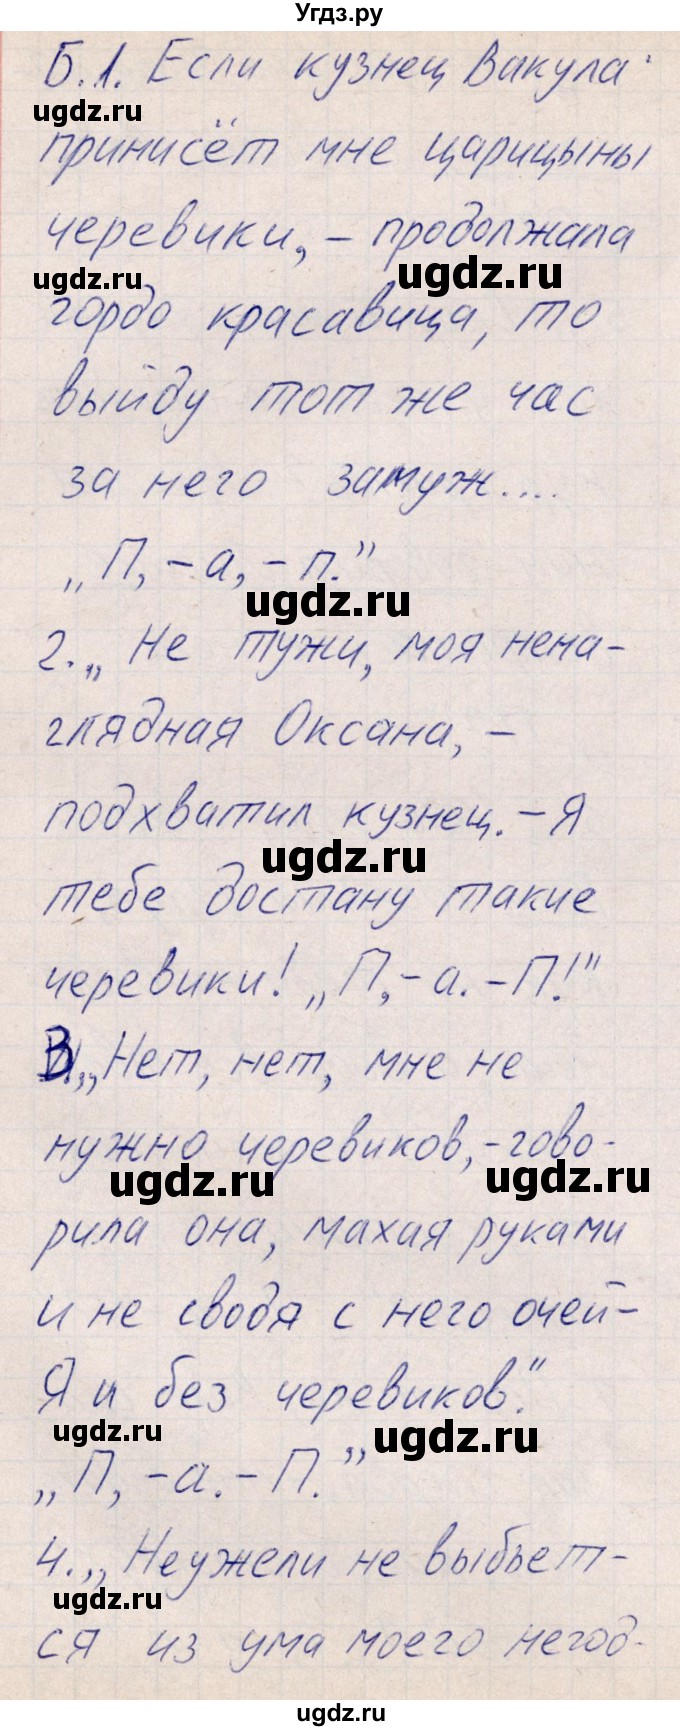 Угдз.ру
Б.1. Если кузнец Вакула
ugdz.ru
принисёт мне царицыны
черевики, – продолжала
ugdz.ru ugdz.ru
гордо красавица, то
выйду тот же час
за него замуж....
„П, – а, – п.”
ugdz.ru
2. „Не тужи, моя нена-
глядная Оксана, –
подхватил кузнец. – Я
ugdz.ru
тебе достану такие
черевики! „П, – а. – П!"
В „Нет, нет, мне не
нужно черевиков, – гово-
ugdz.ru ugdz.ru
рила она, махая руками
и не сводя с него очей –
Я и без черевиков".
ugdz.ru ugdz.ru
„П, – а. – П.”
4. „Неужели не выбьет-
ugdz.ru
ся из ума моего негод-
ugdz.ru